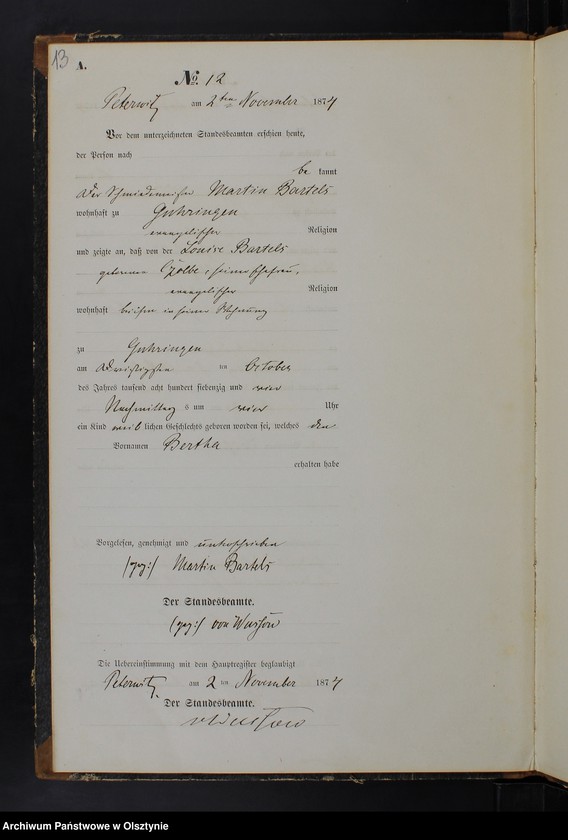 13
A.
No. 12
Peterwitz am 2ten November 1874
Vor dem unterzeichneten Standesbeamten erschien heute,
der Person nach
be kannt
der Schmiedemeister Martin Bartels
wohnhaft zu Guhringen
evangelischer Religion
und zeigte an, daß von der Louise Bartels
geborenen seiner Ehefrau,
evangelischer Religion
wohnhaft bei ihm in seiner Wohnung
zu Guhringen
am dreißigsten ten October
des Jahres tausend acht hundert siebenzig und vier
Nachmittag s um vier Uhr
ein Kind weib lichen Geschlechts geboren worden sei, welches den
Vornamen Bertha
erhalten habe
Vorgelesen, genehmigt und unterschrieben
(gez:) Martin Bartels
Der Standesbeamte.
(gez:) von
Die Uebereinstimmung mit dem Hauptregister beglaubigt
Peterwitz, am 2 ten November 1874
Der Standesbeamte.
Archiwum Państwowe w Olsztynie